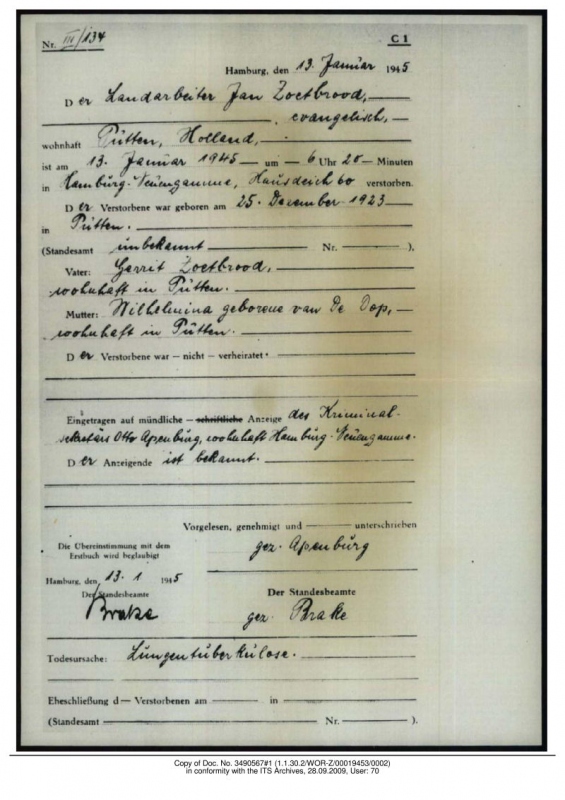 Nr. III/134 C 1
Hamburg, den 13. Januar 1945
D er Landarbeiter Jan Zoetbrood,
evangelisch,
wohnhaft Pütten, Holland,
ist am 13. Januar 1945 um 6 Uhr 20 Minuten
in Hamburg-Neuengamme, Hausdeich 60 verstorben.
D er Verstorbene war geboren am 25. Dezember 1923
in Pütten.
(Standesamt unbekannt Nr. ).
Vater: Gerrit Zoetbrood,
wohnhaft in Pütten.
Mutter: Wilhelmina geborene van De Dop,
wohnhaft in Pütten.
D er Verstorbene war – nicht – verheiratet.
Eingetragen auf mündliche – schriftliche Anzeige des Kriminal-
sekretärs Otto Apenburg, wohnhaft Hamburg-Neuengamme.
D er Anzeigende ist bekannt.
Vorgelesen, genehmigt und unterschrieben
gez. Apenburg
Die Übereinstimmung mit dem
Erstbuch wird beglaubigt
Hamburg, den 13. 1 1945
Der Standesbeamte
Brake
Der Standesbeamte
gez. Brake
Todesursache: Lungentuberkulose.
Eheschließung d— Verstorbenen am in
(Standesamt Nr. ).
Copy of Doc. No. 3490567#1 (1.1.30.2/WOR-Z/00019453/0002)
in conformity with the ITS Archives, 28.09.2009, User: 70